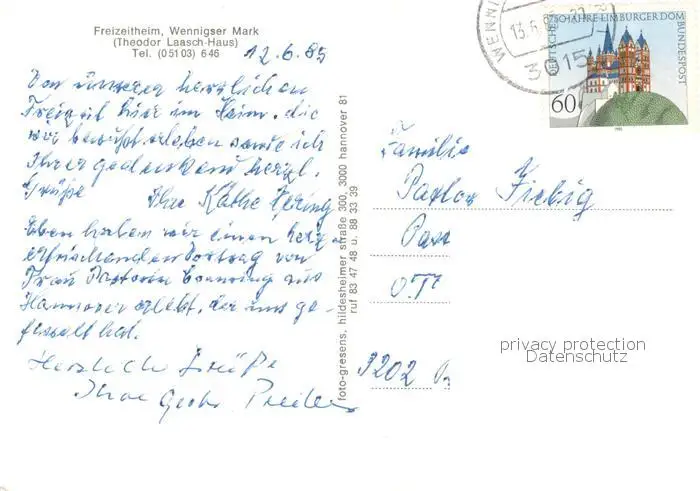 Freizeitheim, Wennigser Mark
(Theodor Laasch-Haus)
Tel. (051 03) 6 46
12.6.85
Von unserer herzlichen
Freizeit hier im Heim, die
wir bewußt erleben sende ich
Ihrer gedenkend herzl.
Grüße Ihre Käthe Hering
Eben haben wir einen herz-
erfrischenden Vortrag von
Frau Pastorin aus
Hannover erlebt, der uns ge-
fesselt hat.
Herzliche Grüße
Ihre
foto-gresens, hildesheimer straße 300, 3000 hannover 81
ruf 83 47 48 u. 88 33 39
WENNI
13.6.8
3015
750 JAHRE LIMBURGER DOM
DEUTSCHE BUNDESPOST
60
Familie
Pastor Fiebig
Past
O.T.
3202
privacy protection
Datenschutz